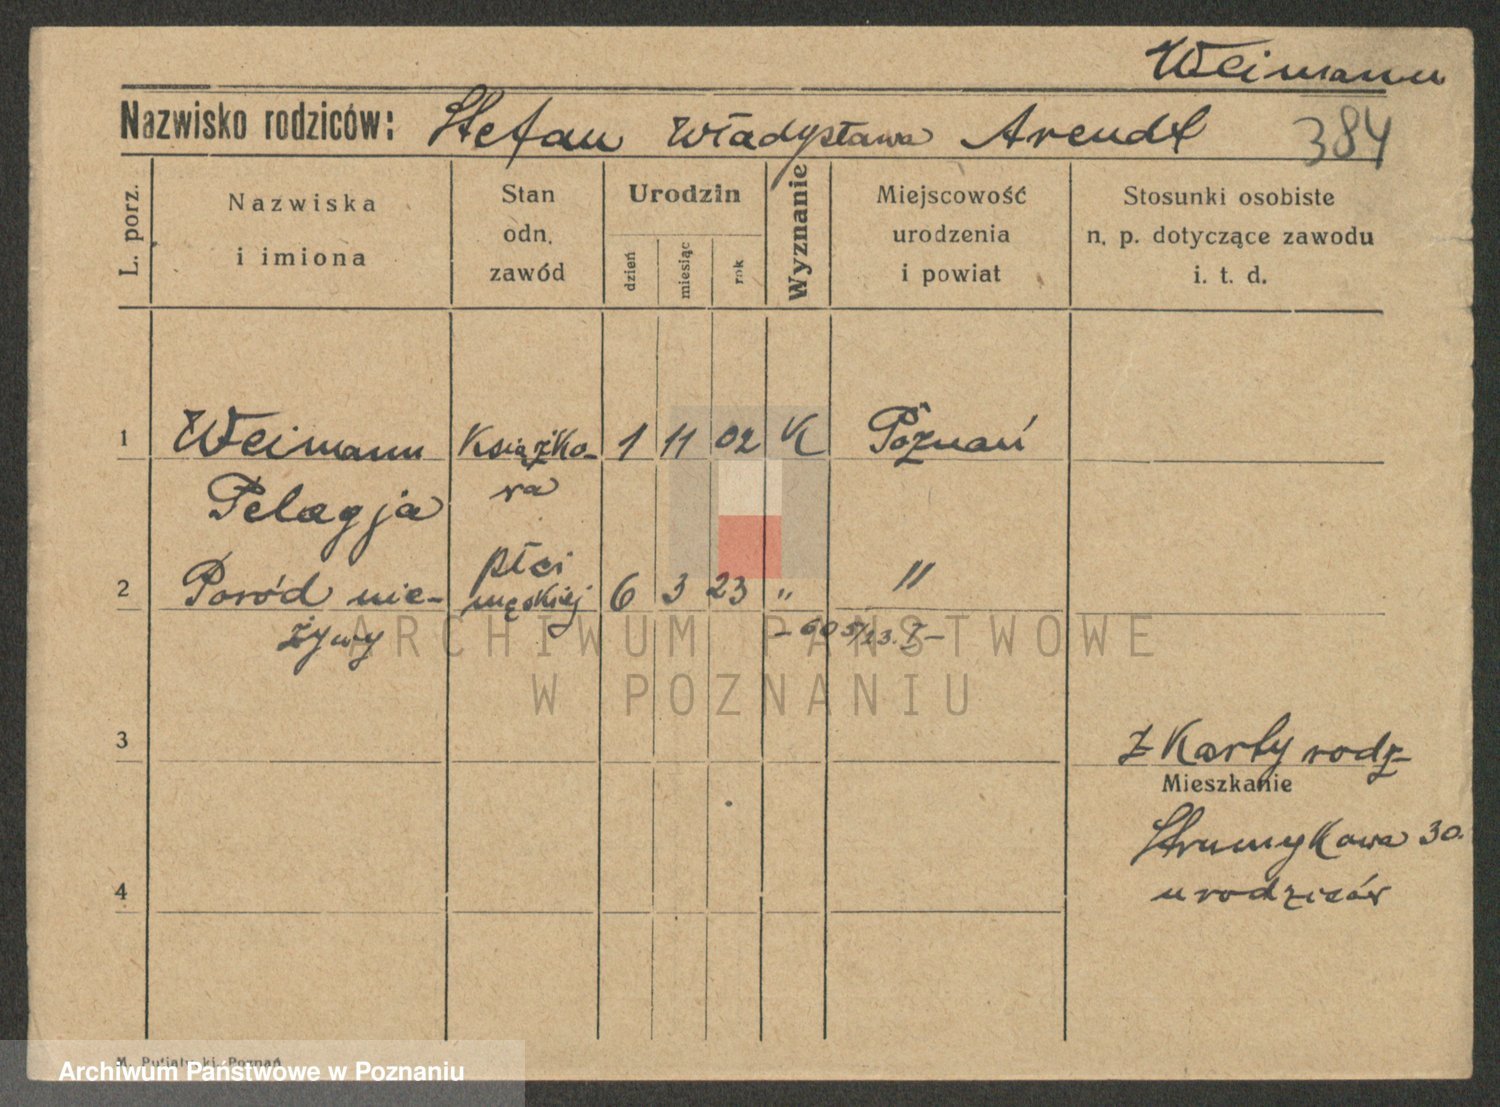 Weimann
Nazwisko rodziców: Stefan Władysława Arendt 384
L. porz.
Nazwiska
i imiona
Stan
odn.
zawód
Urodzin
dzień
miesiąc
rok
Wyznanie
Miejscowość
urodzenia
i powiat
Stosunki osobiste
n. p. dotyczące zawodu
i. t. d.
1 Weimann Książko- 1 11 02 K Poznań
Pelagja wa
płci
2 Poród nie- męskiej 6 3 23 " "
żywy - 605/23. I -
3
z Karty rodz-
Mieszkanie
Strumykowa 30.
4 u rodziców
ARCHIWUM PAŃSTWOWE
W POZNANIU
Poznań
Archiwum Państwowe w Poznaniu